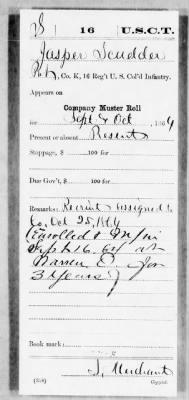 S 16 U.S.C.T.
Jasper Scudder
Pvt, Co. K, 16 Reg't U. S. Col'd Infantry.
Appears on
Company Muster Roll
for Sept & Oct, 1864
Present or absent Present
Stoppage, $ 100 for
Due Gov't, $ 100 for
Remarks: Recruit assigned to
Co. Oct 25, 1864
(Enrolled & M in
Sept 16. 64 at
Warren O. for
3 years)
Book mark:
Copyist.